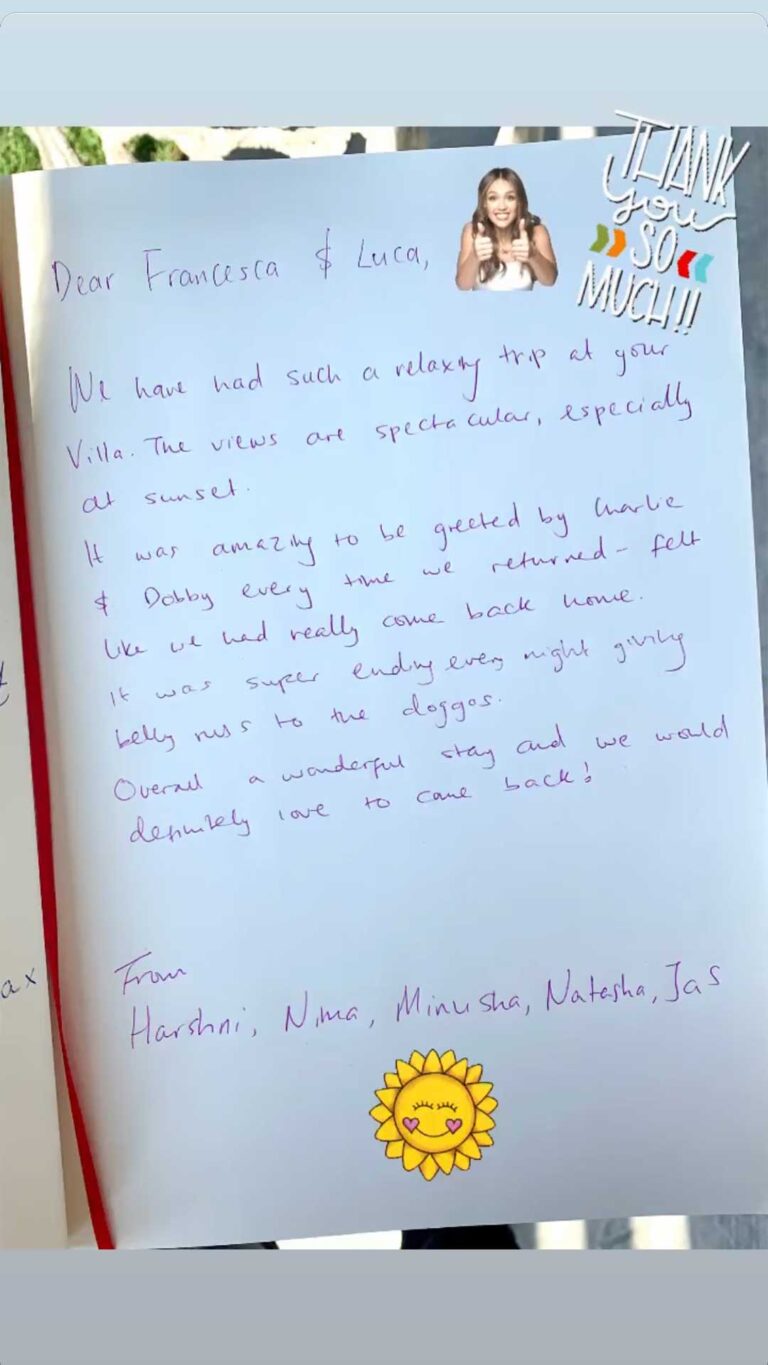 THANK
you
SO
MUCH!!
Dear Francesca & Luca,
We have had such a relaxing trip at your
Villa. The views are spectacular, especially
at sunset.
It was amazing to be greeted by Charlie
& Dobby every time we returned - felt
like we had really come back home.
It was super ending every night giving
belly rubs to the doggos.
Overall a wonderful stay and we would
definitely love to come back!
From
Harshni, Nima, Minusha, Natasha, Jas
ax